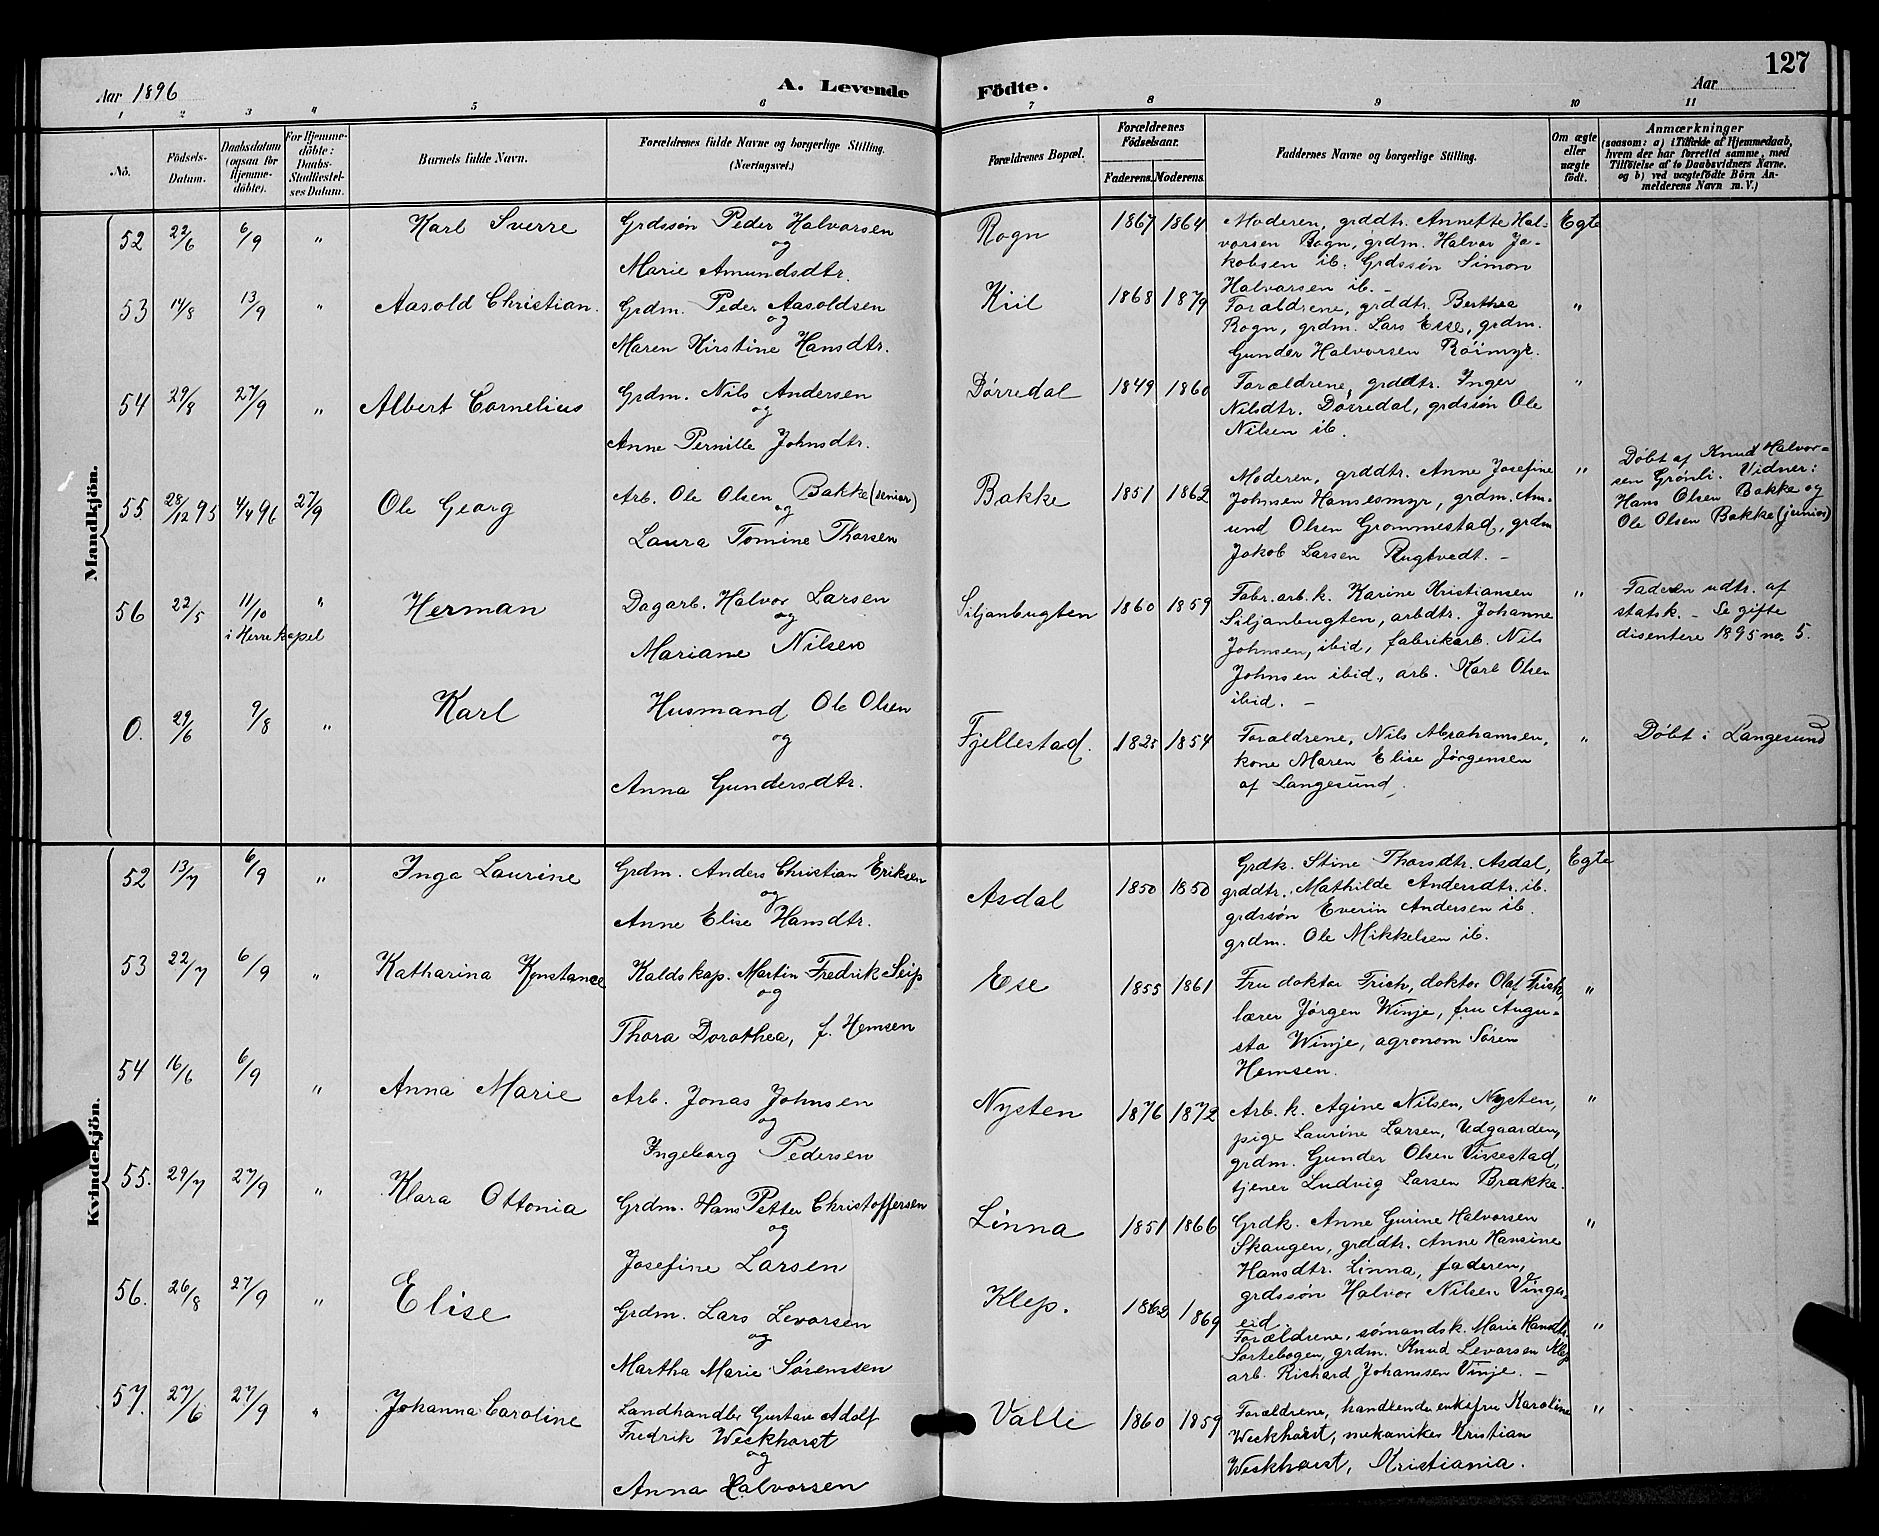 127
Aar 1896
A. Levende
Födte.
Aar
1 2 3 4 5 6 7 8 9 10 11
No.
Födsels-
Datum.
Daabsdatum
(ogsaa for
Hjemme-
döbte).
For Hjemme-
döbte:
Daabs-
Stadfæstel-
ses Datum.
Barnets fulde Navn.
Forældrenes fulde Navne og borgerlige Stilling.
(Næringsvei.)
Forældrenes Bopæl.
Forældrenes
Födselsaar.
Faderens. Moderens.
Faddernes Navne og borgerlige Stilling.
Om ægte
eller
uægte
födt.
Anmærkninger
(saasom: a) i Tilfælde af Hjemmedaab,
hvem der har forrettet samme, med
Tilföielse af to Daabsvidners Navne.
og b) ved uægtefödte Börn An-
melderens Navn m. V.)
Mandkjön.
52 22/6 6/9 " Karl Sverre
Grdssøn Peder Halvorsen
og
Marie Amundsdtr.
Rogn 1867 1864
Moderen, grddtr. Annette Hal-
vorsen Rogn, grdm. Halvor Ja-
kobsen ib. Grdssøn Simon
Halvorsen ib. -
Egte
53 14/8 13/9 " Aasold Christian.
Grdm. Peder Aasoldsen
og
Maren Kirstine Hansdtr.
Kiil 1868 1879
Forældrene, grddtr. Berthea
Rogn, grdm. Lars Ese, grdm.
Gunder Halvorsen Röimyr.
"
54 29/8 27/9 " Albert Cornelius
Grdm. Nils Andersen
og
Anne Pernille Johnsdtr.
Dørredal 1849 1860
Forældrene, grddtr. Inger
Nilsdtr. Dørredal, grdssøn Ole
Nilsen ib.
"
55. 28/12 95 4/4 96 27/9 Ole Georg
Arb. Ole Olsen Bakke (senior)
og
Laura Tomine Thorsen
Bakke 1851 1862
Moderen, grddtr. Anne Josefine
Johnsen Hanesmyr, grdm. Am-
und Olsen Grommestad, grdm
Jakob Larsen Rugtvedt. -
"
Døbt af Knud Halvor-
sen Grønli. Vidner:
Hans Olsen Bakke og
Ole Olsen Bakke (junior)
56 22/5 11/10 " Herman
i Herre kapel
Dagarb. Halvor Larsen
og
Mariane Nilsen
Siljanbugten 1860 1859
Fabr. arb. k. Karine Kristiansen
Siljanbugten, arbdtr. Johanne
Johnsen, ibid, fabrikarb. Nils
Johnsen ibid., arb. Karl Olsen
ibid. -
"
Faderen udtr. af
statsk. - Se gifte
disentere 1895 no. 5.
0. 29/6 9/8 " Karl
Husmand Ole Olsen
og
Anna Gundersdtr.
Fjellestad. 1825 1854
Forældrene, Nils Abrahamsen,
kone Maren Elise Jørgensen
af Langesund,
"
Døbt i Langesund
Kvindekjön.
52 13/7 6/9 " Inga Laurine
Grdm. Anders Christian Eriksen
og
Anne Elise Hansdtr.
Asdal 1850 1850
Grdk. Stine Thorsdtr. Asdal,
grddtr. Mathilde Andersdtr. ib.
grdssøn Everin Andersen ib.
grdm. Ole Mikkelsen ib.
Egte
53 22/7 6/9 " Katharina Konstance
Kaldskap. Martin Fredrik Seip
og
Thora Dorothea, f. Hemsen
Ese 1855 1861
Fru doktor Frich, doktor Olaf Frich,
lærer Jørgen Winje, fru Augu-
sta Winje, agronom Søren
Hemsen.
"
54 16/6 6/9 " Anna Marie
Arb. Jonas Johnsen
og
Ingeborg Pedersen
Nysten 1876 1872
Arb. k. Agine Nilsen, Nysten,
pige Laurine Larsen, Udgaarden,
grdm. Gunder Olsen Vissestad,
tjener Ludvig Larsen Brakke.
"
55. 29/7 27/9 " Klara Ottonia
Grdm. Hans Petter Christoffersen
og
Josefine Larsen
Linna 1851 1866
Grdk. Anne Gurine Halvorsen
Skaugen, grddtr. Anne Hansine
Hansdtr. Linna, faderen,
grdssøn Halvor Nilsen Vinger-
eid.
"
56. 26/8 27/9 " Elise
Grdm. Lars Levorsen
og
Martha Marie Sørensen
Klep. 1862 1869
Forældrene, sømandsk. Marie Hansdtr.
Sortebogen, grdm. Knud Levorsen Klep
arb. Richard Johannsen Vinje. -
"
57. 27/6 27/9 " Johanna Caroline
Landhandler Gustav Adolf
Fredrik Weckhorst
og
Anna Halvorsen
Valle 1860 1859
Forældrene, handlende enkefru Karoline
Weckhorst, mekaniker Kristian
Weckhorst, Kristiania.
"